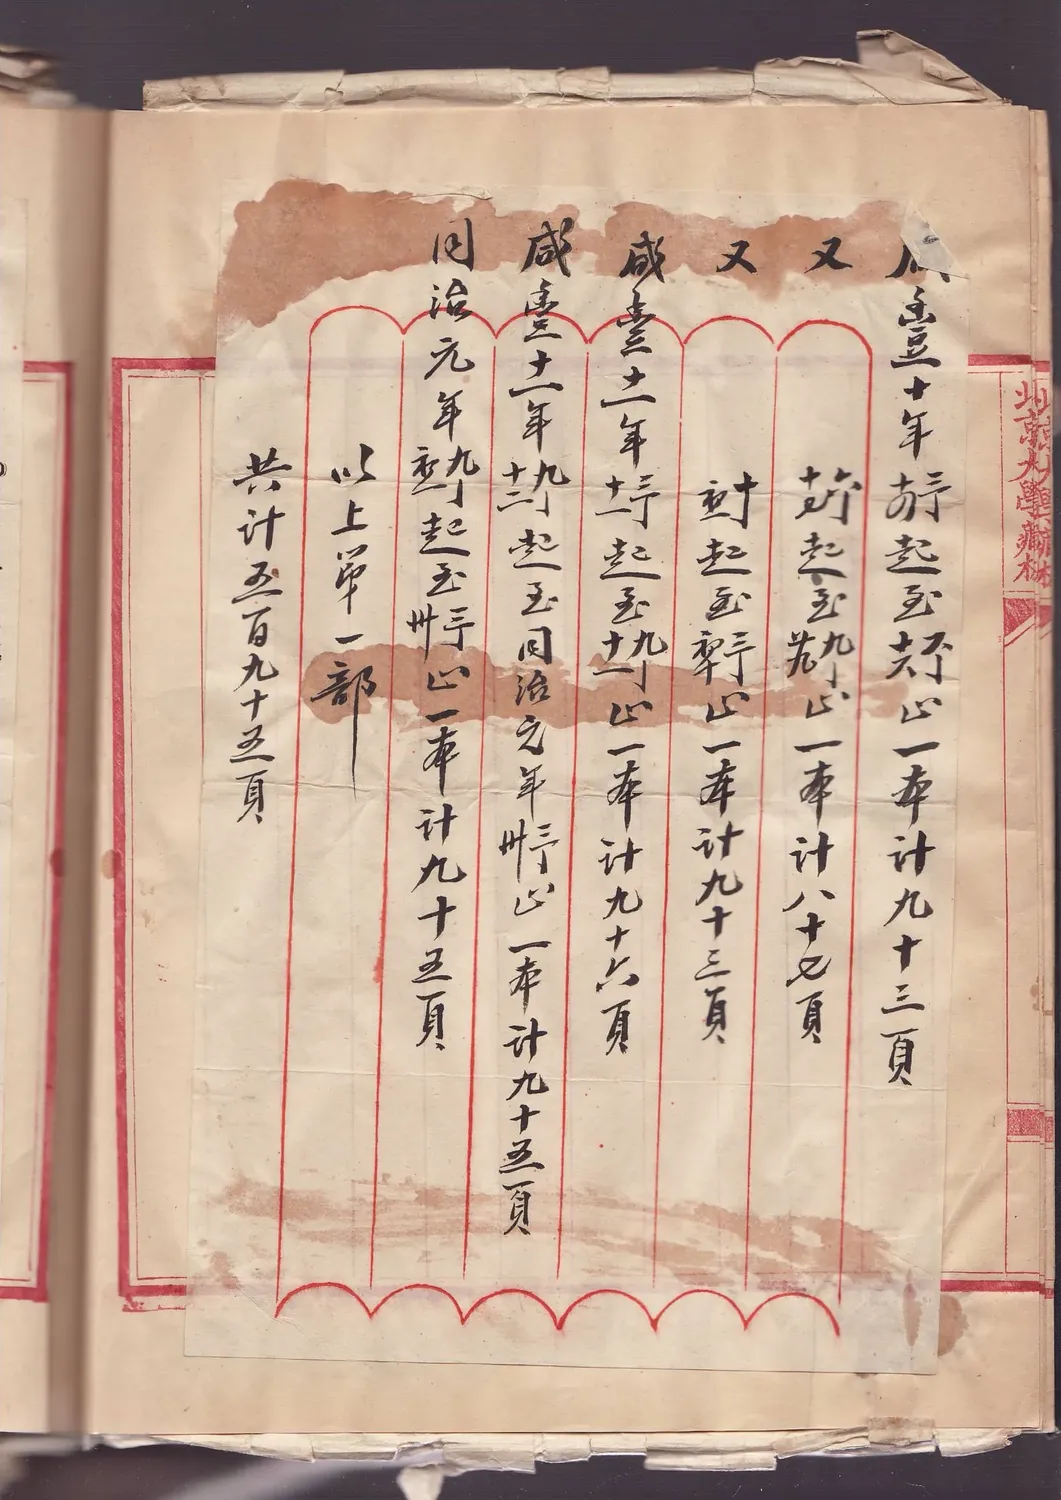 咸豐十年 起至 止一本計九十三頁
又 起至 止一本計八十七頁
又 起至 止一本計九十三頁
咸豐十一年 起至 止一本計九十六頁
咸豐十一年 起至同治元年 止一本計九十五頁
同治元年 起至 止一本計九十五頁
以上單一部
共計五百九十五頁
北京大學藏